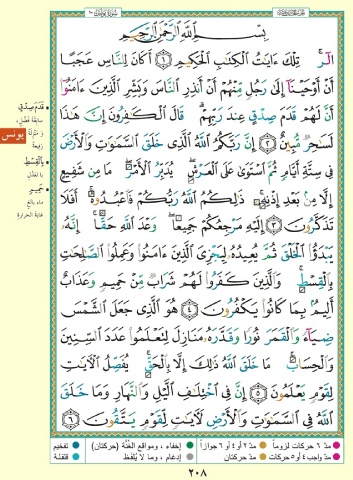 سُورَةُ يُونُسَ ١٠
بِسْمِ اللَّهِ الرَّحْمَٰنِ الرَّحِيمِ
الٓر ۚ تِلْكَ ءَايَٰتُ الْكِتَٰبِ الْحَكِيمِ ١ أَكَانَ لِلنَّاسِ عَجَبًا
أَنْ أَوْحَيْنَآ إِلَىٰ رَجُلٍ مِّنْهُمْ أَنْ أَنذِرِ النَّاسَ وَبَشِّرِ الَّذِينَ ءَامَنُوٓا
أَنَّ لَهُمْ قَدَمَ صِدْقٍ عِندَ رَبِّهِمْ ۗ قَالَ الْكَٰفِرُونَ إِنَّ هَٰذَا
لَسَٰحِرٌ مُّبِينٌ ٢ إِنَّ رَبَّكُمُ اللَّهُ الَّذِى خَلَقَ السَّمَٰوَٰتِ وَالْأَرْضَ
فِى سِتَّةِ أَيَّامٍ ثُمَّ اسْتَوَىٰ عَلَى الْعَرْشِ ۖ يُدَبِّرُ الْأَمْرَ ۖ مَا مِن شَفِيعٍ
إِلَّا مِنۢ بَعْدِ إِذْنِهِۦ ۚ ذَٰلِكُمُ اللَّهُ رَبُّكُمْ فَاعْبُدُوهُ ۚ أَفَلَا
تَذَكَّرُونَ ٣ إِلَيْهِ مَرْجِعُكُمْ جَمِيعًا ۖ وَعْدَ اللَّهِ حَقًّا ۚ إِنَّهُۥ
يَبْدَؤُا الْخَلْقَ ثُمَّ يُعِيدُهُۥ لِيَجْزِىَ الَّذِينَ ءَامَنُوا وَعَمِلُوا الصَّٰلِحَٰتِ
بِالْقِسْطِ ۚ وَالَّذِينَ كَفَرُوا لَهُمْ شَرَابٌ مِّنْ حَمِيمٍ وَعَذَابٌ
أَلِيمٌۢ بِمَا كَانُوا يَكْفُرُونَ ٤ هُوَ الَّذِى جَعَلَ الشَّمْسَ
ضِيَآءً وَالْقَمَرَ نُورًا وَقَدَّرَهُۥ مَنَازِلَ لِتَعْلَمُوا عَدَدَ السِّنِينَ
وَالْحِسَابَ ۚ مَا خَلَقَ اللَّهُ ذَٰلِكَ إِلَّا بِالْحَقِّ ۚ يُفَصِّلُ الْءَايَٰتِ
لِقَوْمٍ يَعْلَمُونَ ٥ إِنَّ فِى اخْتِلَٰفِ الَّيْلِ وَالنَّهَارِ وَمَا خَلَقَ
اللَّهُ فِى السَّمَٰوَٰتِ وَالْأَرْضِ لَءَايَٰتٍ لِّقَوْمٍ يَتَّقُونَ ٦
قَدَمَ صِدْقٍ
سابقة فضل،
و منزلة
رفيعة
يونس
بِالْقِسْطِ
بالعدل
حَمِيمٍ
ماء بالغ
غاية الحرارة
مدّ ٦ حركات لزوماً
مدّ ٢ أو ٤ أو ٦ جوازاً
إخفاء، ومواقع الغُنَّة (حركتان)
تفخيم
مدّ واجب ٤ أو ٥ حركات
مدّ حركتان
إدغام، وما لا يُلفظ
قلقلة
٢٠٨